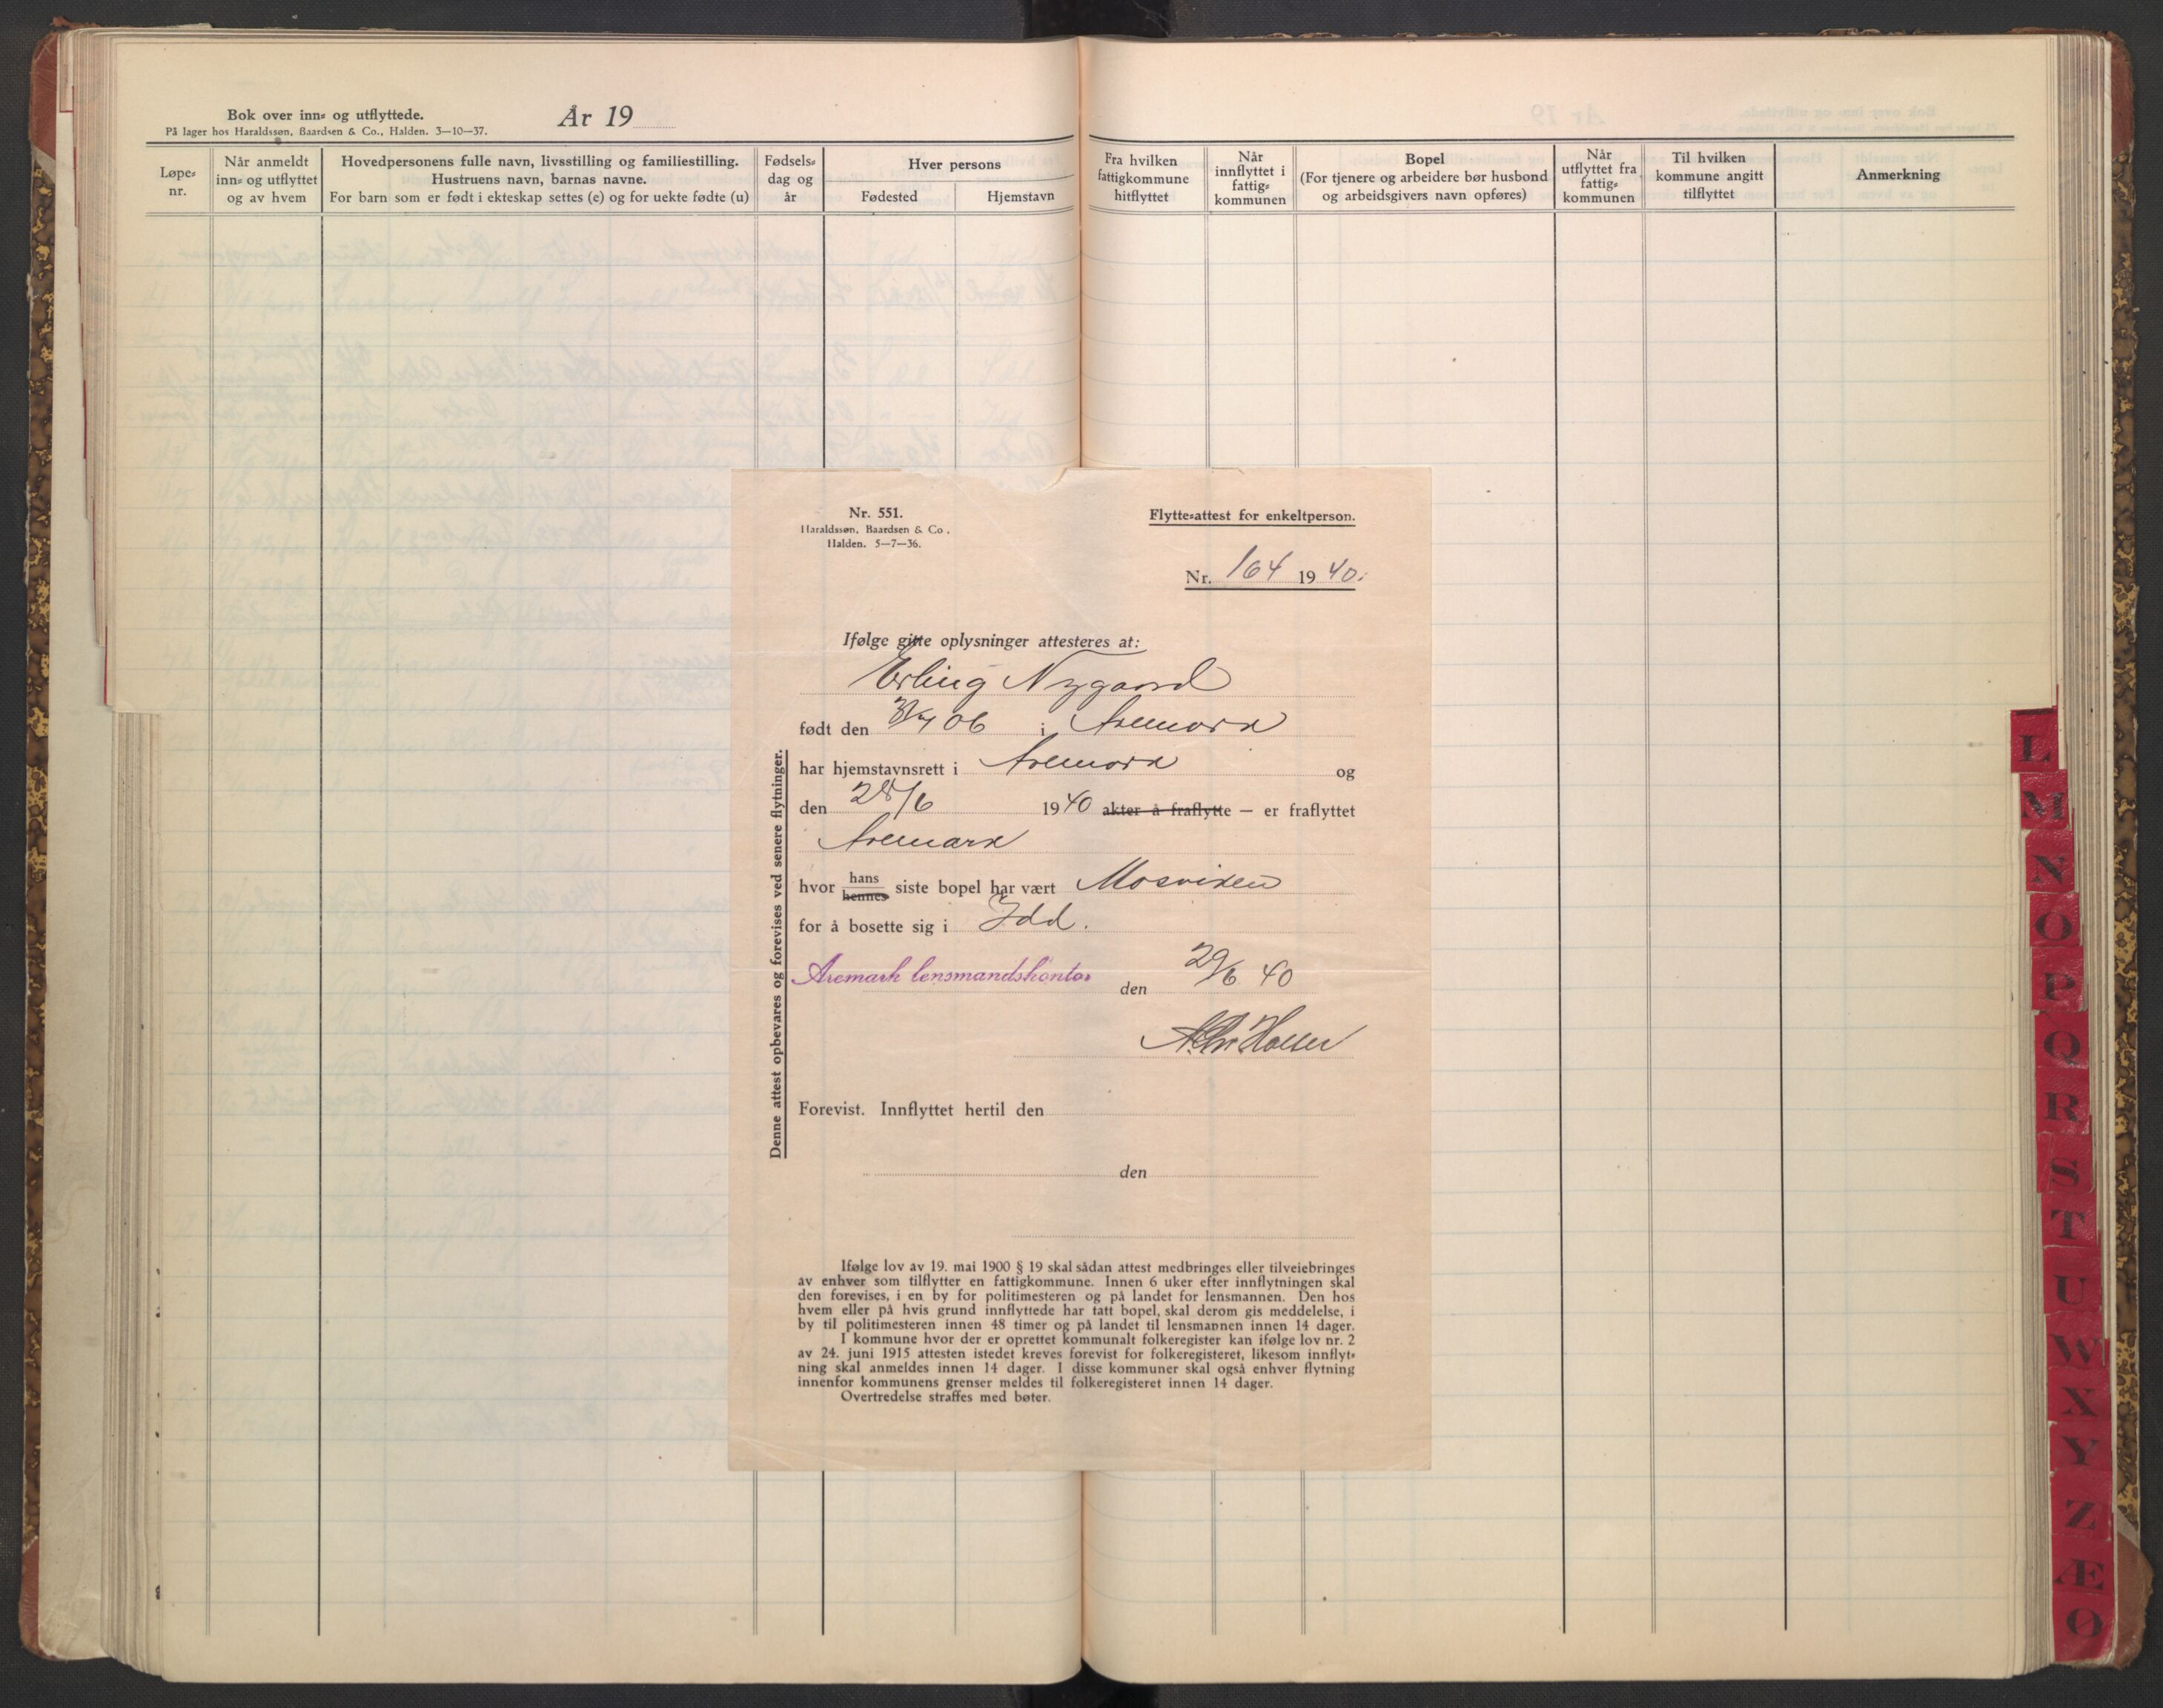 Bok over inn- og utflyttede.
På lager hos Haraldssøn, Baardsen & Co., Halden. 3—10—37.
År 19
Løpe-
nr.
Når anmeldt
inn- og utflyttet
og av hvem
Hovedpersonens fulle navn, livsstilling og familiestilling.
Hustruens navn, barnas navne.
For barn som er født i ekteskap settes (e) og for uekte fødte (u)
Fødsels-
dag og
år
Hver persons
Fødested
Hjemstavn
Fra hvilken
fattigkommune
hitflyttet
Når
innflyttet i
fattig-
kommunen
Bopel
(For tjenere og arbeidere bør husbond
og arbeidsgivers navn opføres)
Når
utflyttet fra
fattig-
kommunen
Til hvilken
kommune angitt
tilflyttet
Anmerkning
Nr. 551.
Haraldssøn, Baardsen & Co.,
Halden. 5—7—36.
Flytte-attest for enkeltperson.
Nr. 164 1940.
Ifølge gitte oplysninger attesteres at:
Erling Nygaard
født den 06 i Aremark
har hjemstavnsrett i Aremark og
den 28/6 1940 akter å fraflytte — er fraflyttet
Aremark
hvor hans
hennes siste bopel har vært Mosviken
for å bosette sig i Idd.
Aremark lensmandskontor den 29/6 40
Forevist. Innflyttet hertil den
den
Denne attest opbevares og forevises ved senere flytninger.
Ifølge lov av 19. mai 1900 § 19 skal sådan attest medbringes eller tilveiebringes
av enhver som tilflytter en fattigkommune. Innen 6 uker efter innflytningen skal
den forevises, i en by for politimesteren og på landet for lensmannen. Den hos
hvem eller på hvis grund innflyttede har tatt bopel, skal derom gis meddelelse, i
by til politimesteren innen 48 timer og på landet til lensmannen innen 14 dager.
I kommune hvor der er oprettet kommunalt folkeregister kan ifølge lov nr. 2
av 24. juni 1915 attesten istedet kreves forevist for folkeregisteret, likesom innflyt-
ning skal anmeldes innen 14 dager. I disse kommuner skal også enhver flytning
innenfor kommunens grenser meldes til folkeregisteret innen 14 dager.
Overtredelse straffes med bøter.
L
M
N
O
P
Q
R
S
T
U
W
X
Y
Z
Æ
Ø